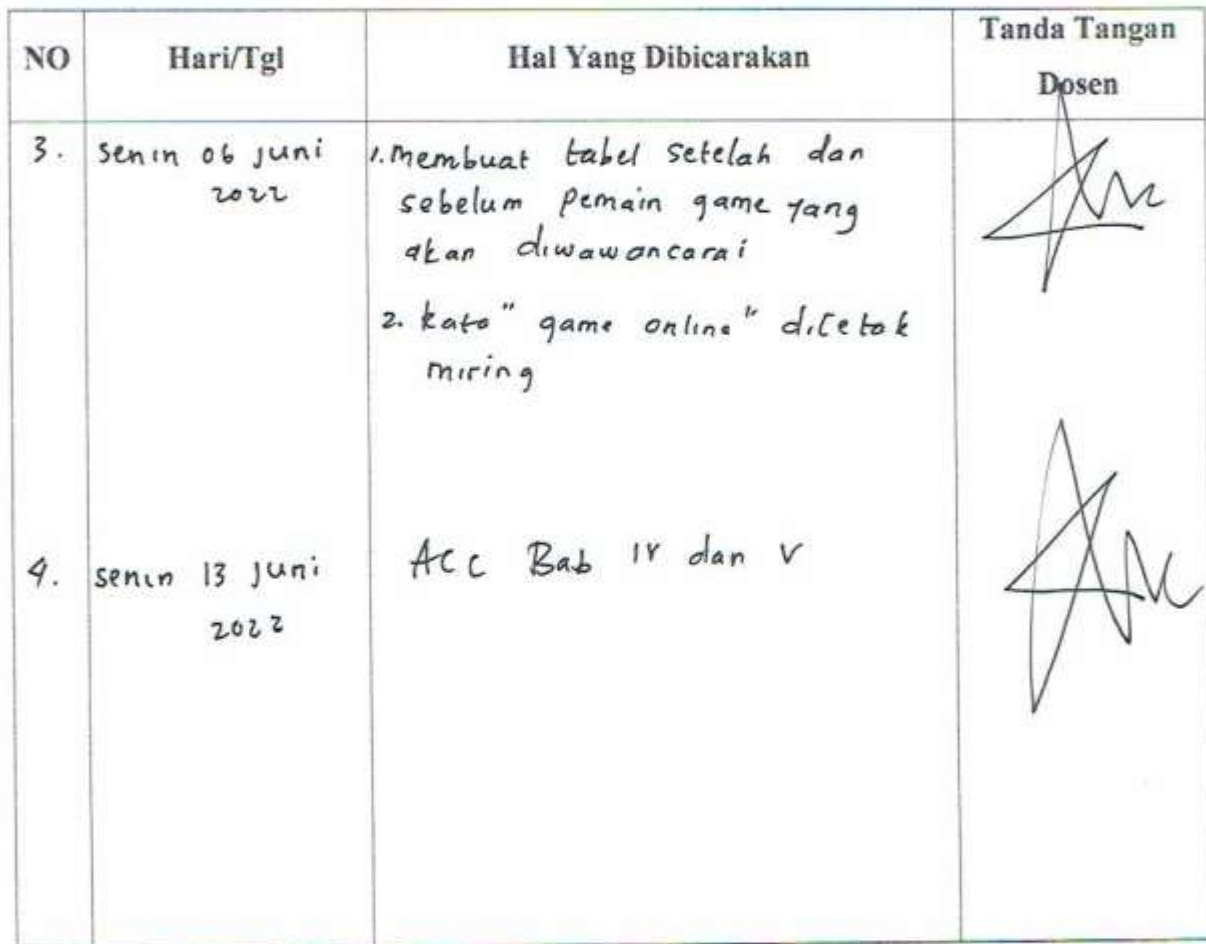 NO Hari/Tgl Hal Yang Dibicarakan Tanda Tangan
Dosen
3. senin 06 juni
2022
1. membuat tabel setelah dan
sebelum pemain game yang
akan diwawancarai
2. kata "game online" dicetak
miring
4. senin 13 juni
2022
ACC Bab IV dan V